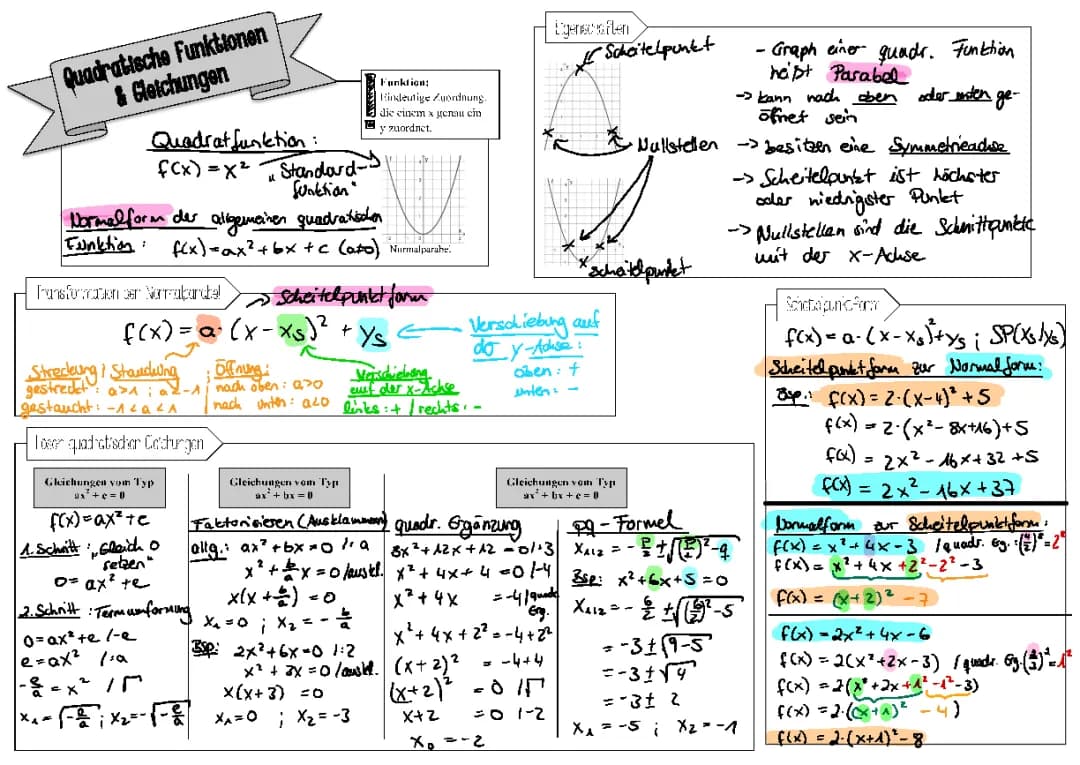 Quadratische Funktionen
& Gleichungen
Funktion:
Eindeutige Zuordnung,
die einem x genau ein
y zuordnet.
Quadratfunktion:
f(x) = x² „Standard-
funktion"
Normalform der allgemeinen quadratischen
Funktion: f(x) = ax² + bx + c (a≠0)
Normalparabel
Eigenschaften
Scheitelpunkt
Nullstellen
Scheitelpunkt
- Graph einer quadr. Funktion
heißt Parabel
-> kann nach oben oder unten ge-
öffnet sein
-> besitzen eine Symmetrieachse
-> Scheitelpunkt ist höchster
oder niedrigster Punkt
-> Nullstellen sind die Schnittpunkte
mit der x-Achse
Transformation der Normalparabel
-> Scheitelpunktform
f(x) = a · (x - xs)² + ys
Streckung / Stauchung
gestreckt: a>1 ; a<-1
gestaucht: -1<a<1
Öffnung:
nach oben: a>0
nach unten: a<0
Verschiebung
auf der x-Achse
links: + / rechts: -
Verschiebung auf
do y-Achse:
oben: +
unten: -
Scheitelpunktform
f(x) = a · (x - xs)² + ys ; SP(xs/ys)
Scheitelpunktform zur Normalform:
Bsp.: f(x) = 2·(x-4)² + 5
f(x) = 2·(x² - 8x+16)+5
f(x) = 2x² - 16x + 32 +5
f(x) = 2x² - 16x + 37
Normalform zur Scheitelpunktform:
f(x) = x² + 4x - 3 / quadr. Eg.: (4/2)² = 2²
f(x) = x² + 4x + 2² - 2² - 3
f(x) = (x+2)² - 7
f(x) = 2x² + 4x - 6
f(x) = 2(x² + 2x - 3) / quadr. Eg. (2/2)² = 1²
f(x) = 2(x² + 2x + 1² - 1² - 3)
f(x) = 2·((x+1)² - 4)
f(x) = 2·(x+1)² - 8
Lösen quadratischer Gleichungen
Gleichungen vom Typ
ax² + c = 0
f(x) = ax² + c
1. Schritt: „Gleich 0
setzen"
0 = ax² + c
2. Schritt: Termumformung
0 = ax² + c /-c
-c = ax² /:a
-c/a = x² /√
x₁ = √-c/a ; x₂ = -√-c/a
Gleichungen vom Typ
ax² + bx = 0
Faktorisieren (Ausklammern)
allg.: ax² + bx = 0 /:a
x² + b/a x = 0 /auskl.
x(x + b/a) = 0
x₁ = 0 ; x₂ = - b/a
Bsp: 2x² + 6x = 0 /:2
x² + 3x = 0 /auskl.
x(x+3) = 0
x₁ = 0 ; x₂ = -3
Gleichungen vom Typ
ax² + bx + c = 0
quadr. Ergänzung
3x² + 12x + 12 = 0 /:3
x² + 4x + 4 = 0 /-4
x² + 4x = -4 /quadr.
Erg.
x² + 4x + 2² = -4 + 2²
(x+2)² = -4+4
(x+2)² = 0 /√
x+2 = 0 /-2
x₀ = -2
pq-Formel
x₁/₂ = - p/2 ± √(p/2)² - q
Bsp: x² + 6x + 5 = 0
x₁/₂ = - 6/2 ± √(6/2)² - 5
= -3 ± √9-5
= -3 ± √4
= -3 ± 2
x₁ = -5 ; x₂ = -1